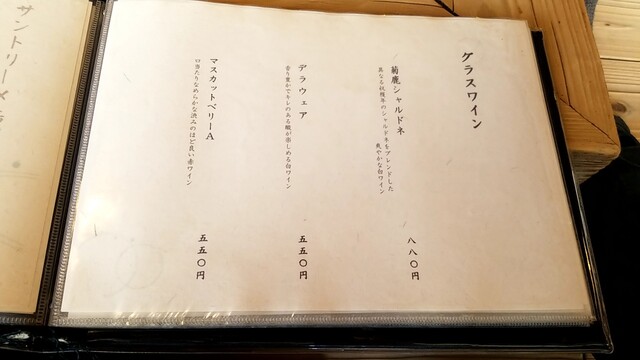 グラスワイン
菊鹿シャルドネ
異なる収穫年のシャルドネをブレンドした
爽やかな白ワイン
八八〇円
デラウェア
香り豊かでキレのある酸が楽しめる白ワイン
五五〇円
マスカットベリーA
口当たりなめらかな渋みのほど良い赤ワイン
五五〇円
サントリー